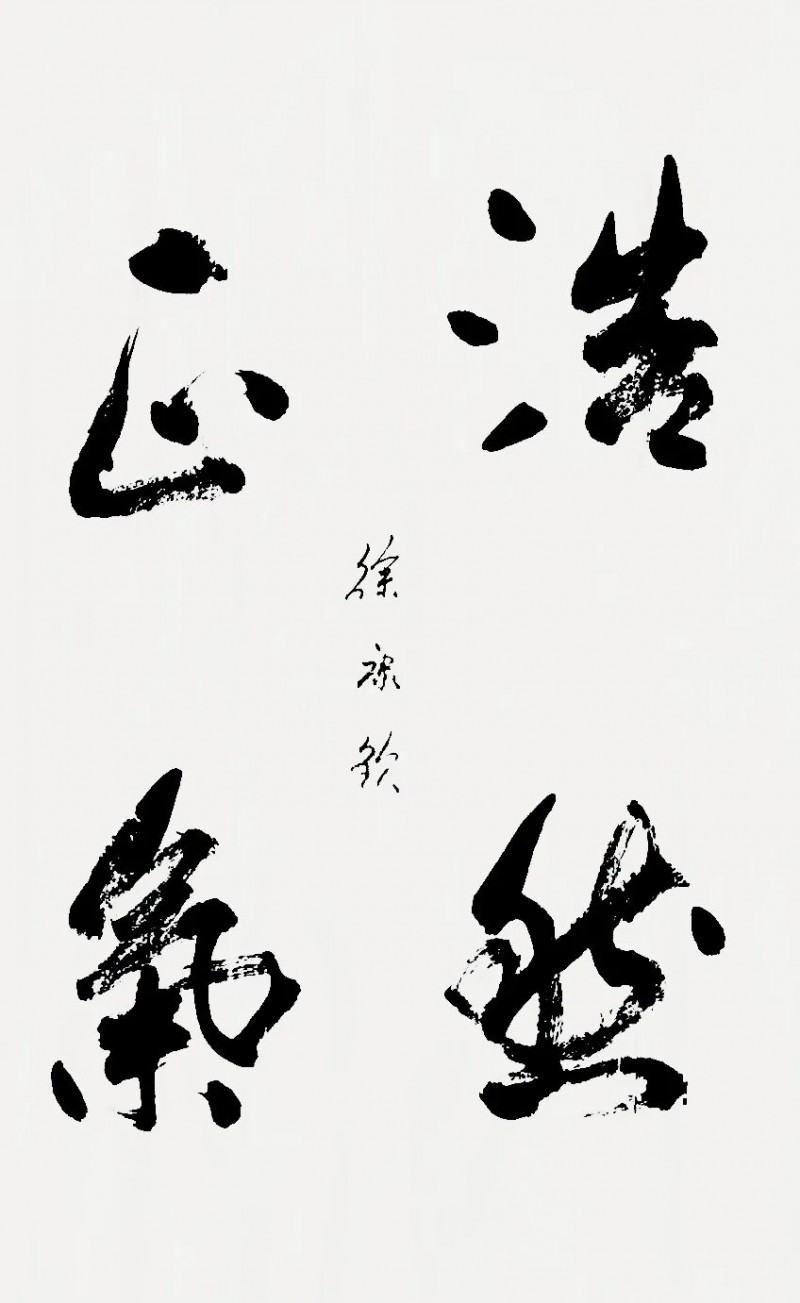 浩然
正氣
徐永欽